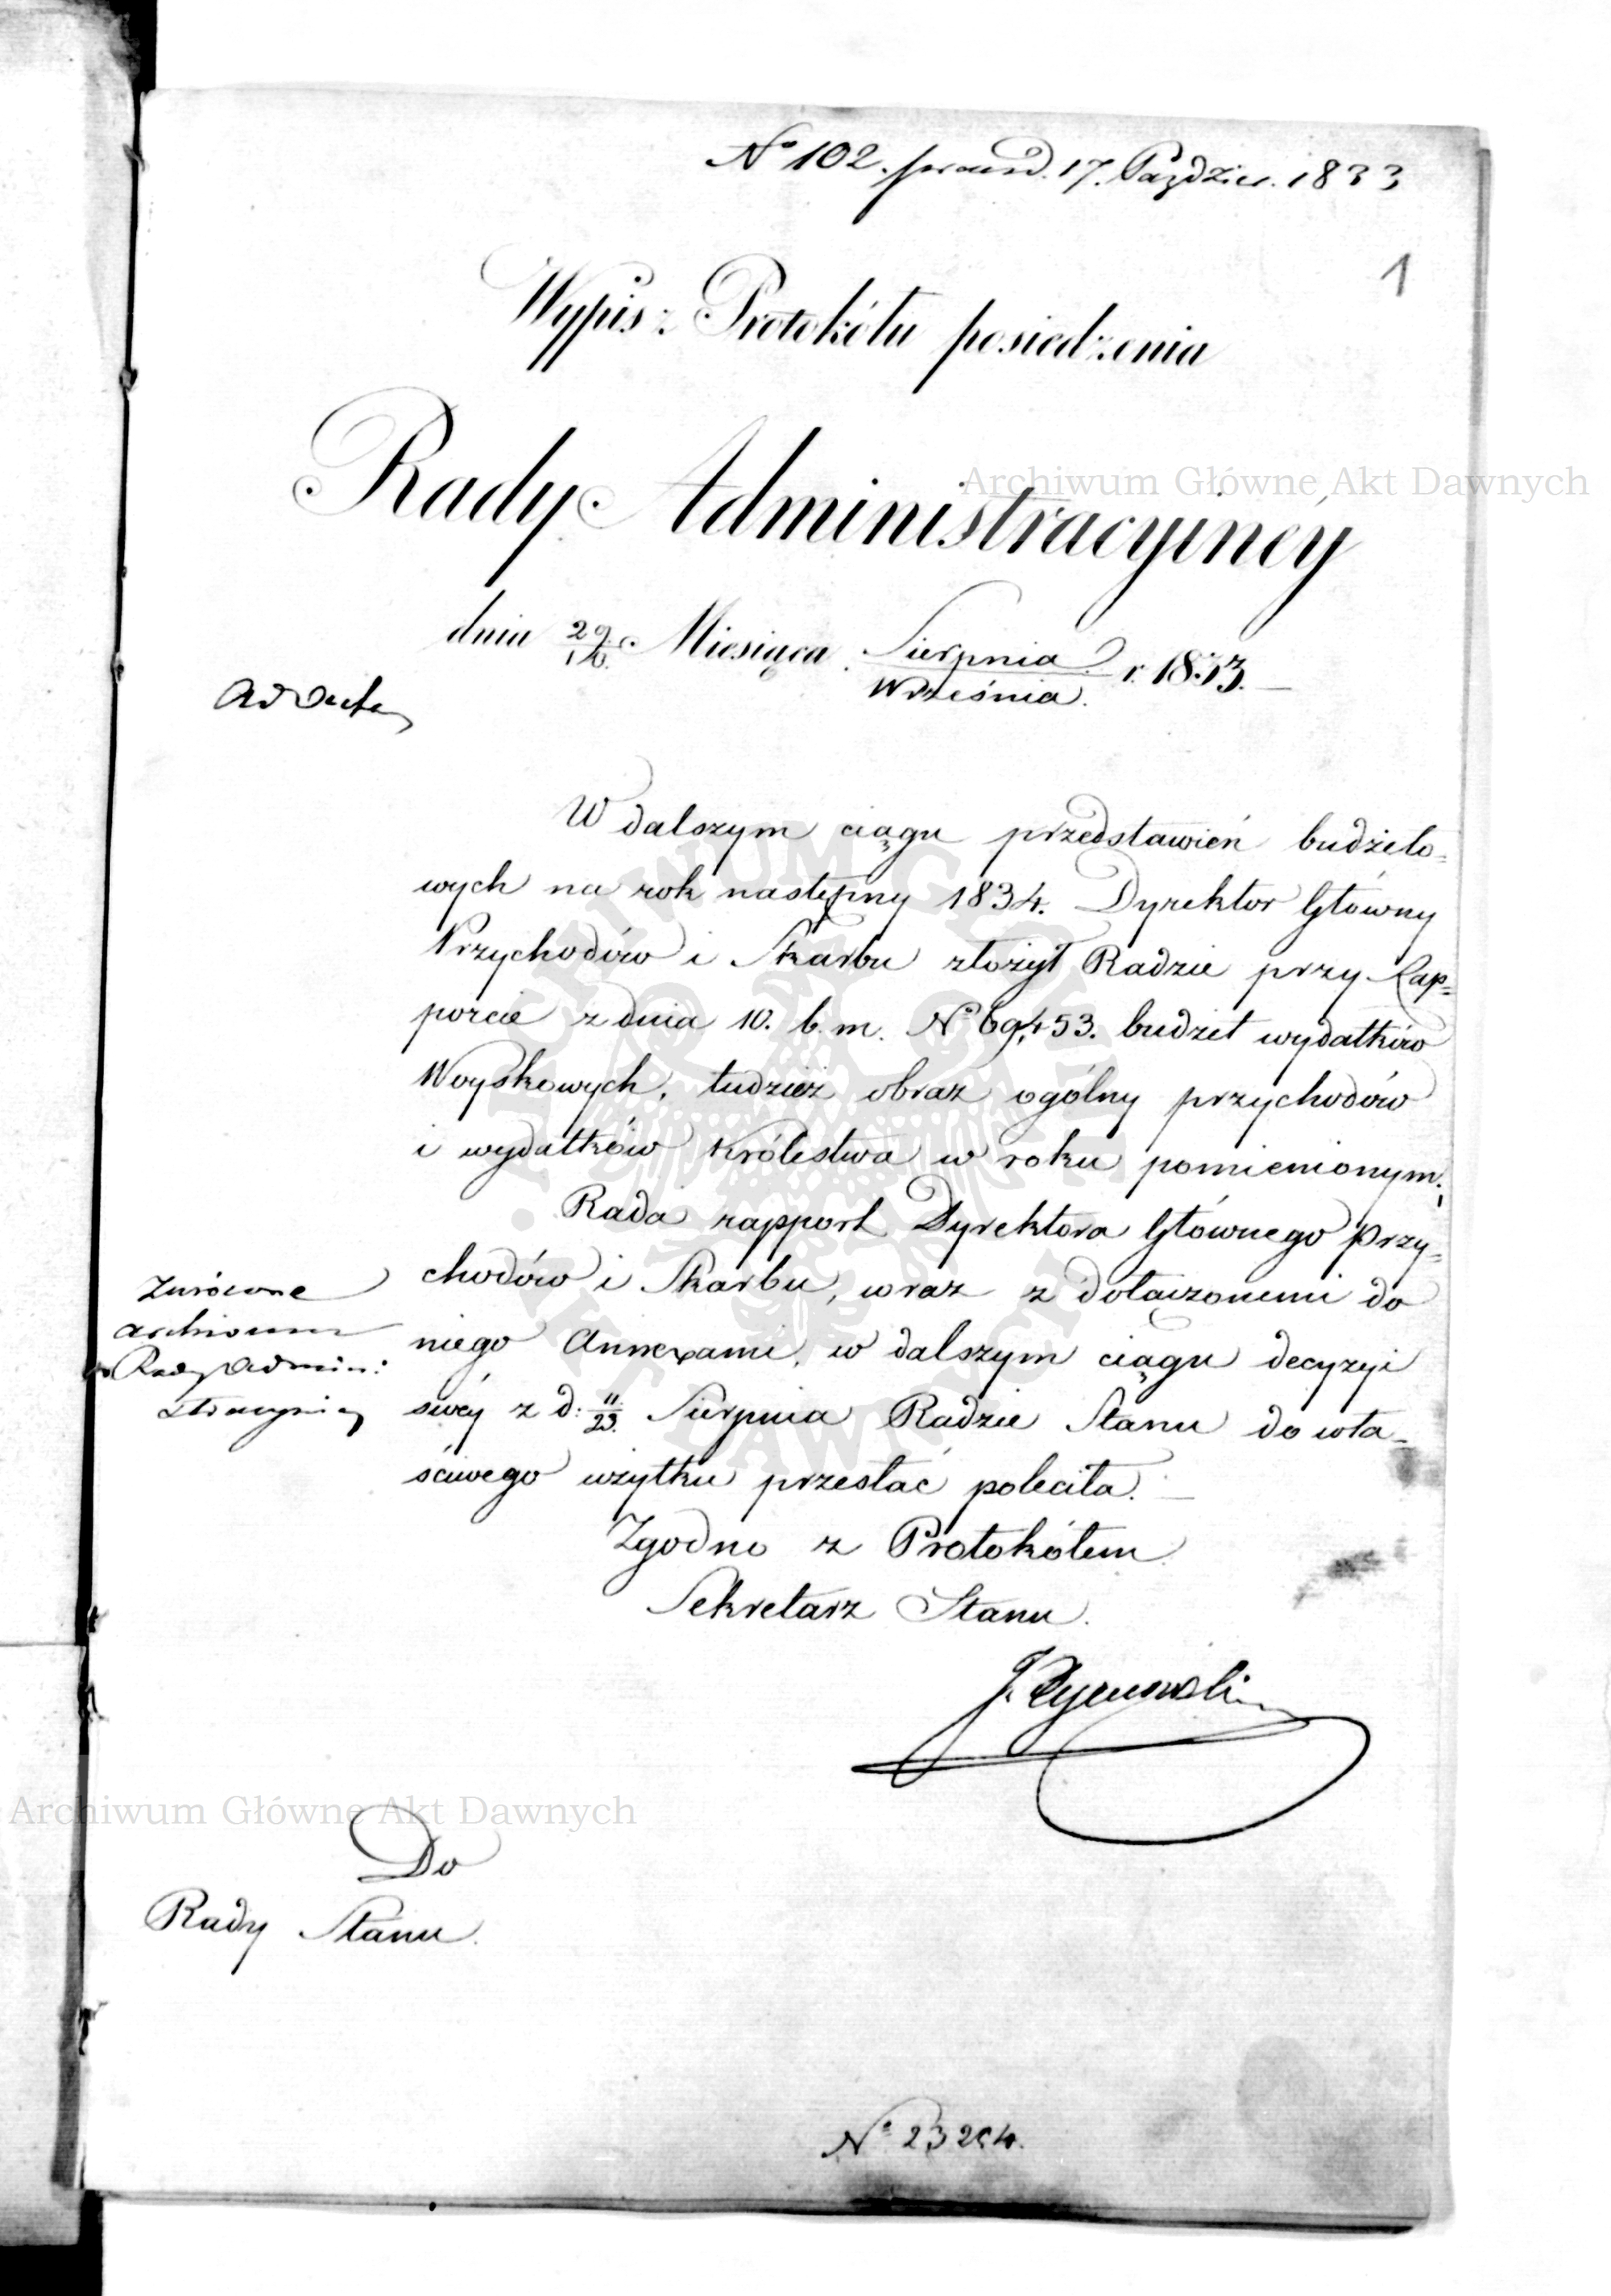 No 102. prand. 17. Paździer. 1833
1
Wypis z Protokółu posiedzenia
Rady Administracyiney
dnia 29/10. Miesiąca Sierpnia/Września r. 1833.
Ad Acta
W dalszym ciągu przedstawień budżeto=
wych na rok następny 1834. Dyrektor Główny
Przychodów i Skarbu złożył Radzie przy Rap=
porcie z dnia 10. b. m. No 69,453. budżet wydatków
Woyskowych, tudzież obraz ogólny przychodów
i wydatków Królestwa w roku pomienionym.
Rada rapport Dyrektora Głównego Przy=
chodów i Skarbu, wraz z dołączonemi do
niego Annexami, w dalszym ciągu decyzyi
swey z d: 11/23. Sierpnia Radzie Stanu do wła=
ściwego użytku przesłać poleciła.
Zwrócone
archiwum
Rady Admini:
stracyiney
Zgodno z Protokółem
Sekretarz Stanu.
J. Tymowski
Do
Rady Stanu.
No 23264.
Archiwum Główne Akt Dawnych
Archiwum Główne Akt Dawnych
ARCHIWUM GŁÓWNE AKT DAWNYCH